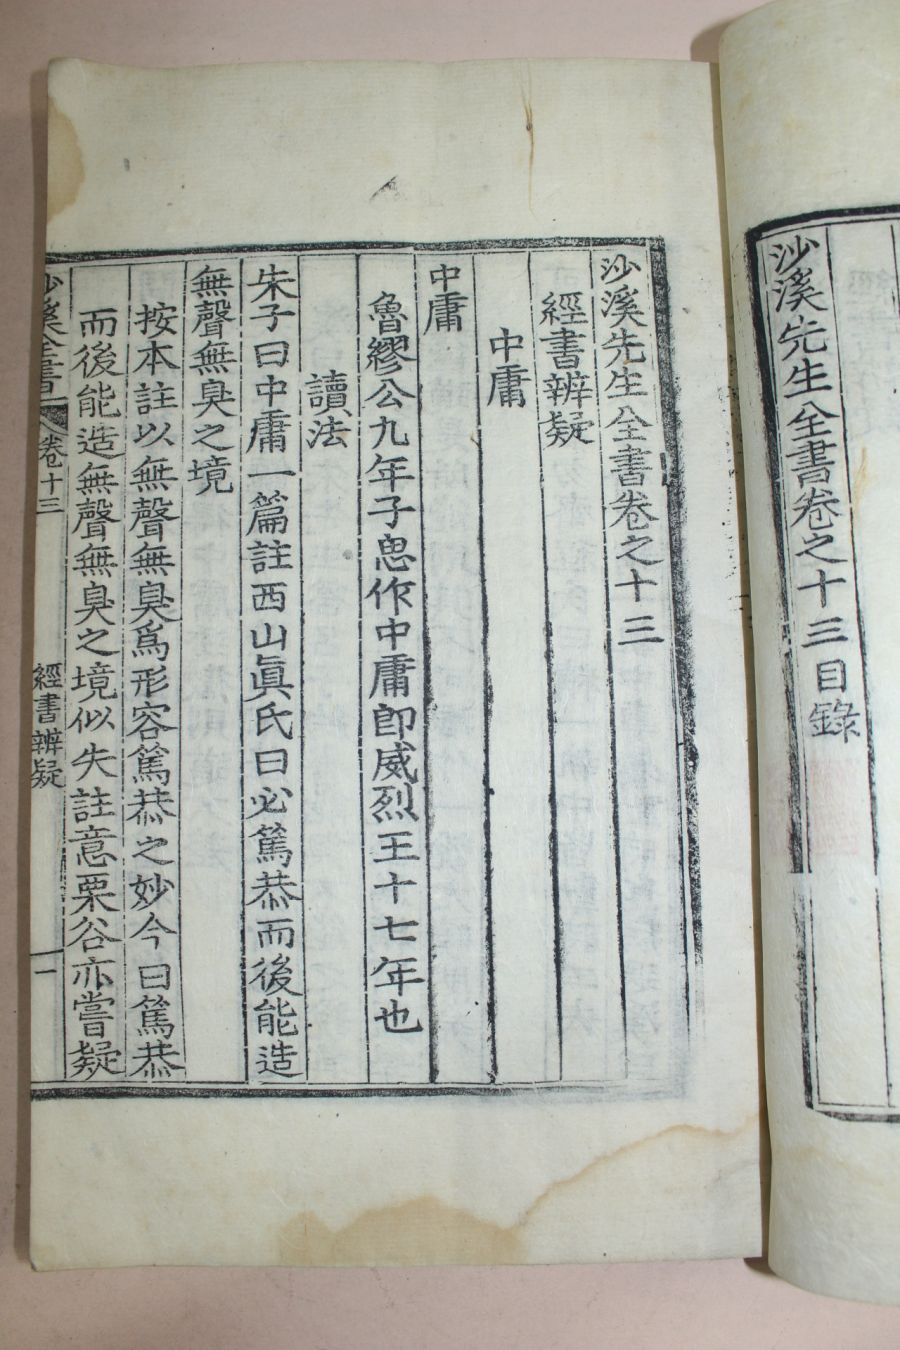 沙溪先生全書卷之十三目錄
沙溪先生全書卷之十三
經書辨疑
中庸
中庸
魯繆公九年子思作中庸卽威烈王十七年也
讀法
朱子曰中庸一篇註西山眞氏曰必篤恭而後能造
無聲無臭之境
按本註以無聲無臭爲形容篤恭之妙今曰篤恭
而後能造無聲無臭之境似失註意栗谷亦嘗疑
沙溪全書 卷十三 經書辨疑 一